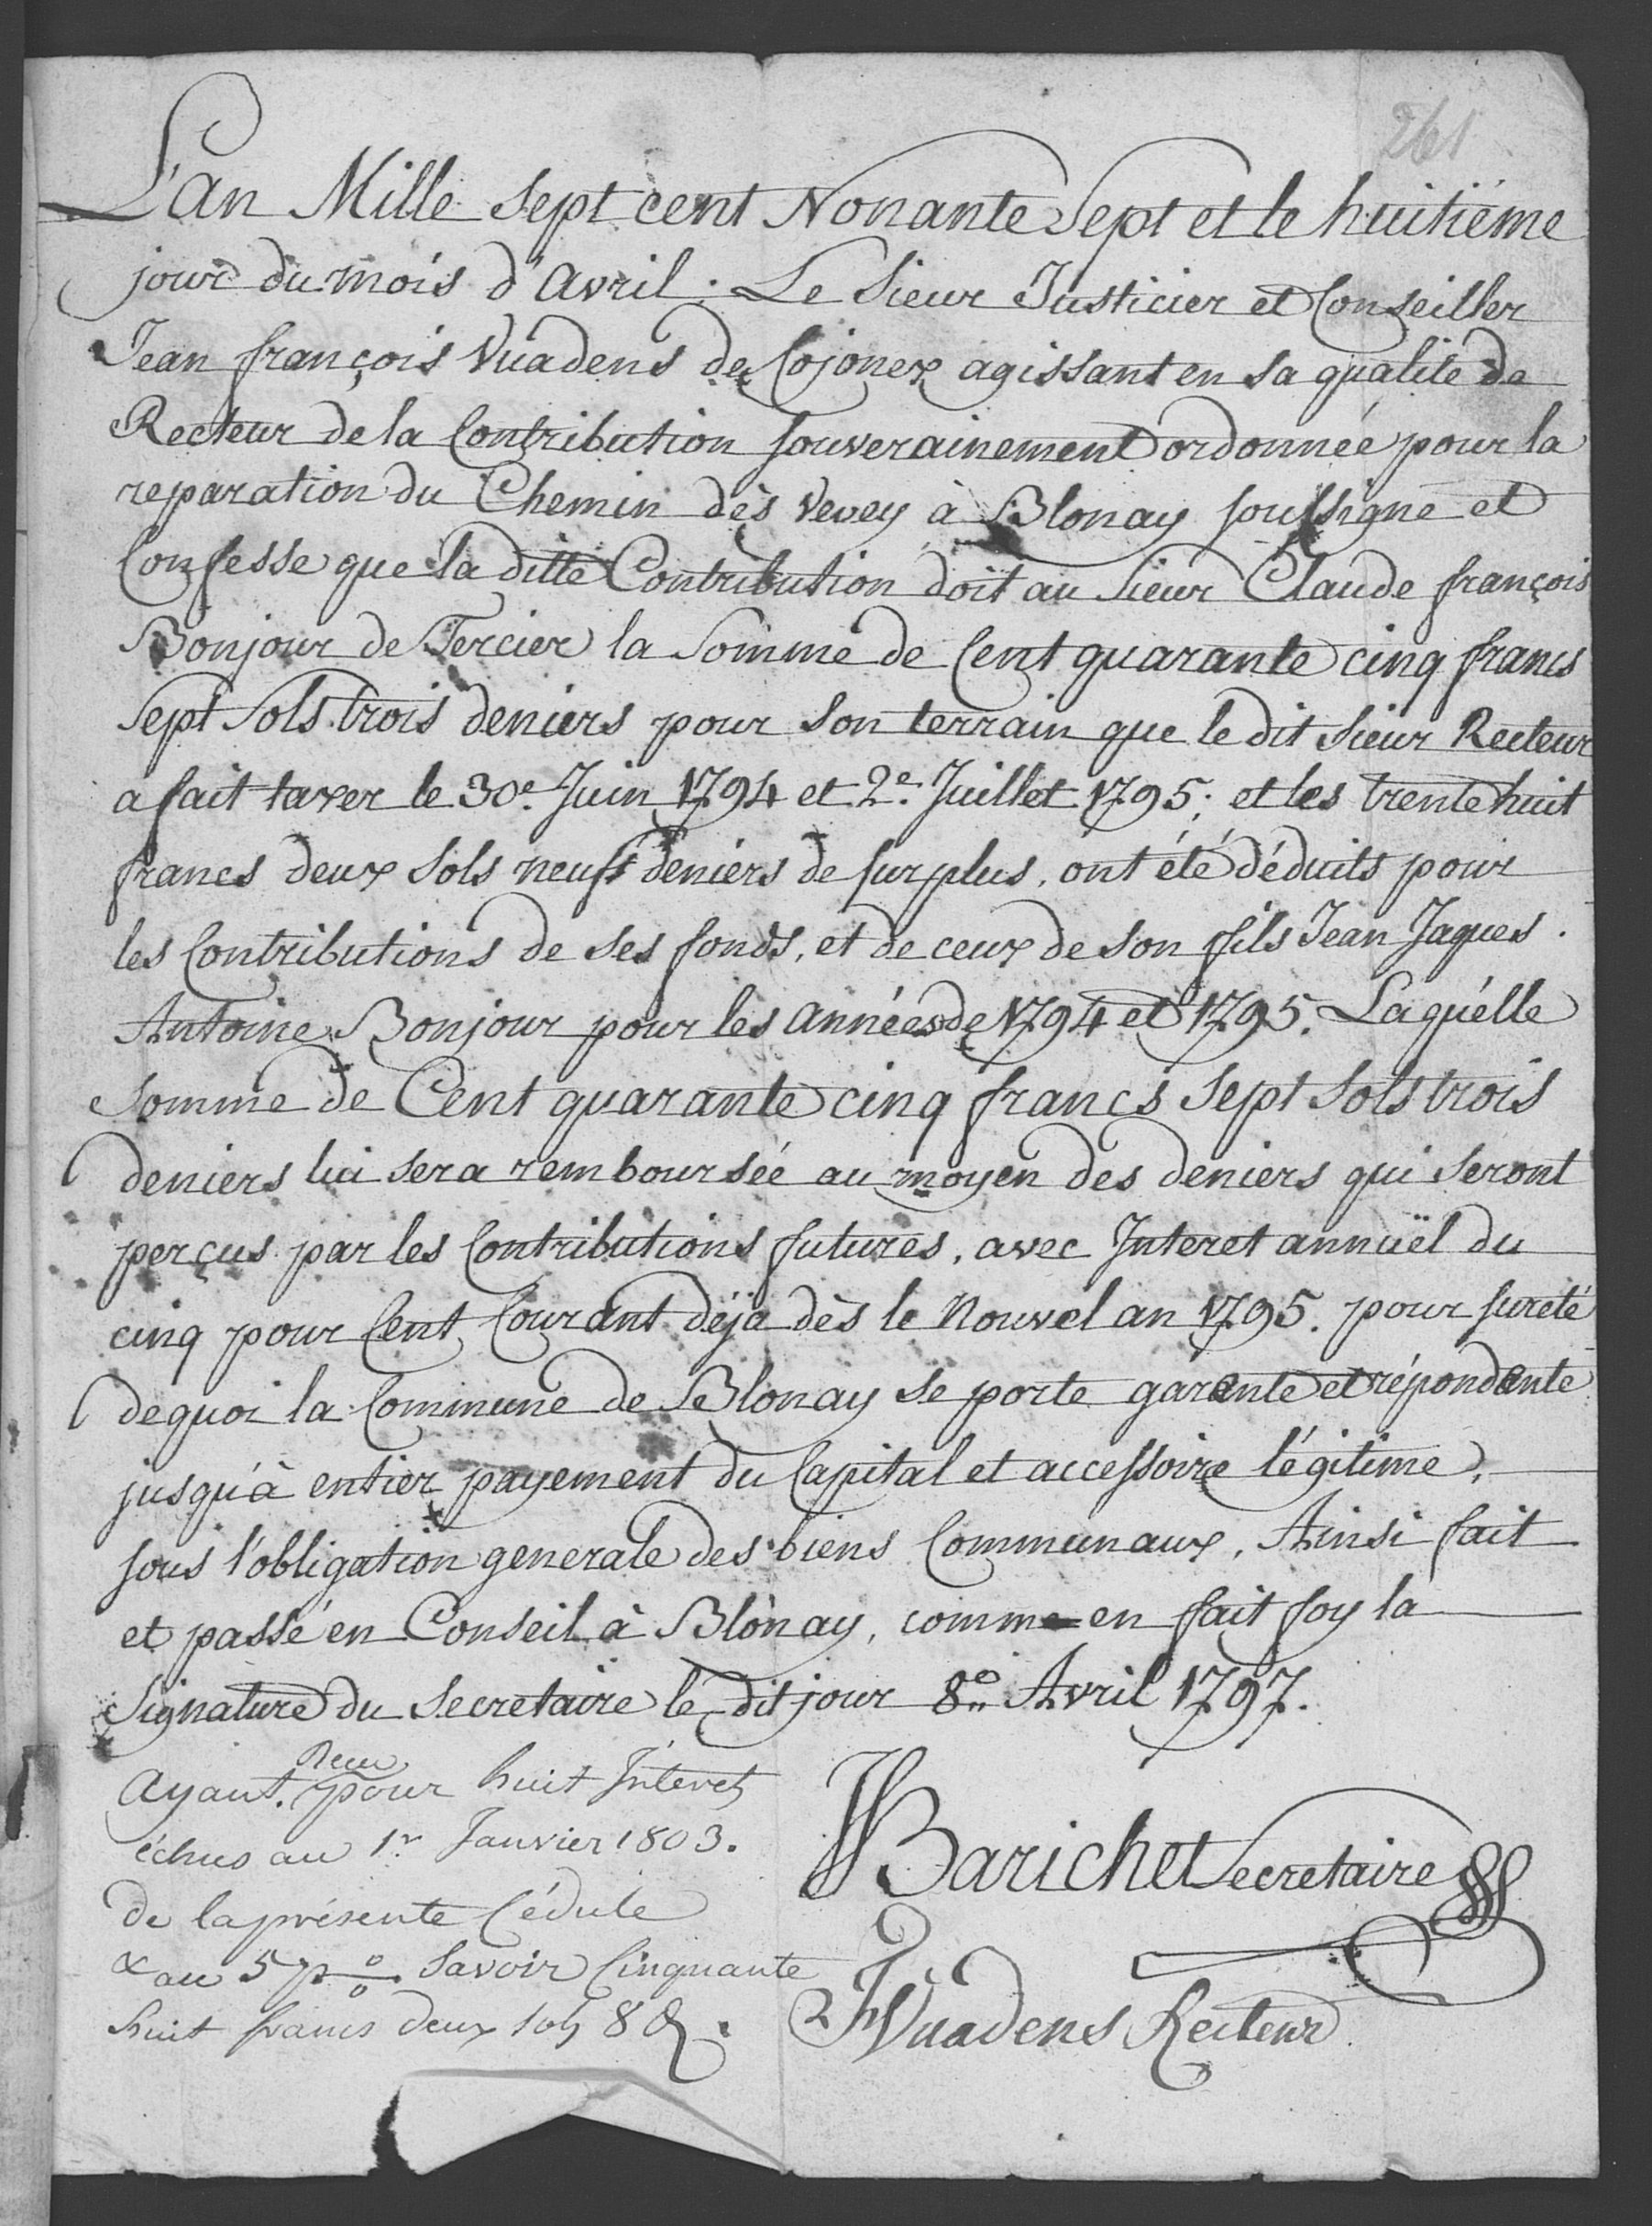 261
L'an Mille Sept cent Nonante Sept et le huitiéme
jour du mois d'Avril. Le Sieur Justicier et Conseiller
Jean françois Vuadens de Cojonex agissant en sa qualité de
Recteur de la Contribution souverainement ordonnée pour la
reparation du Chemin dès Vevey à Blonay soussigné et
Confesse que la ditte Contribution doit au Sieur Claude françois
Bonjour de Tercier la Somme de Cent quarante cinq francs
Sept Sols trois deniers pour son terrain que le dit Sieur Recteur
a fait taxer le 30e. Juin 1794 et 2e. Juillet 1795; et les trente huit
francs deux Sols neuf deniers de surplus, ont été déduits pour
les Contributions de ses fonds, et de ceux de son fils Jean Jaques
Antoine Bonjour pour les années de 1794 et 1795. Laquelle
Somme de Cent quarante cinq francs Sept Sols trois
deniers lui sera remboursée au moyen des deniers qui seront
perçus par les Contributions futures, avec Interet annuël du
cinq pour Cent Courant déja dès le Nouvel an 1795. pour sureté
dequoi la Commune de Blonay se porte garante et répondante
jusqu'à entier payement du Capital et accessoire légitime,
sous l'obligation generale des biens Communaux, Ainsi fait
et passé en Conseil à Blonay, comme en fait foy la
Signature du Secretaire le dit jour 8e. Avril 1797.
Ayant Reçu pour huit Interets
échus au 1r. Janvier 1803.
de la présente Cédule
au 5 p% Savoir Cinquante
huit francs deux sols 8 d.
Barichet Secretaire
Vuadens Recteur